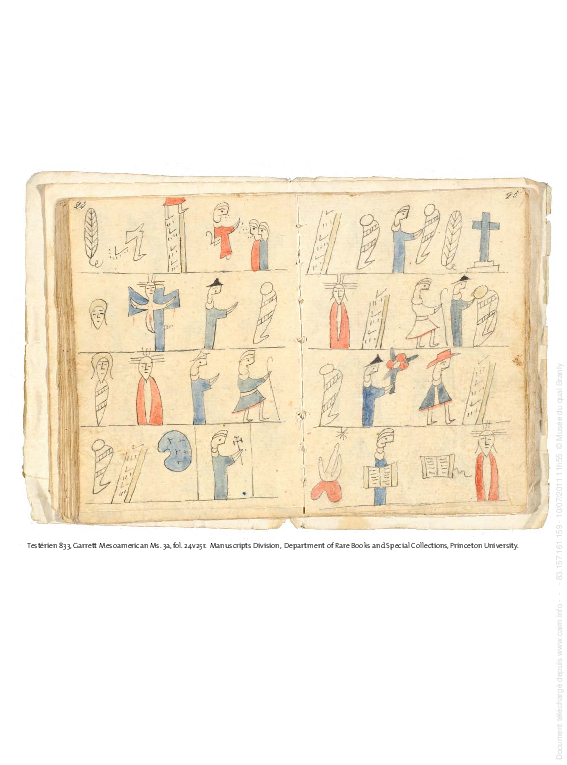 24
25
Testérien 833, Garrett Mesoamerican Ms. 3a, fol. 24v25r. Manuscripts Division, Department of Rare Books and Special Collections, Princeton University.
Document téléchargé depuis www.cairn.info - - - 83.157.161.159 - 10/07/2011 11h55. © Musée du quai Branly